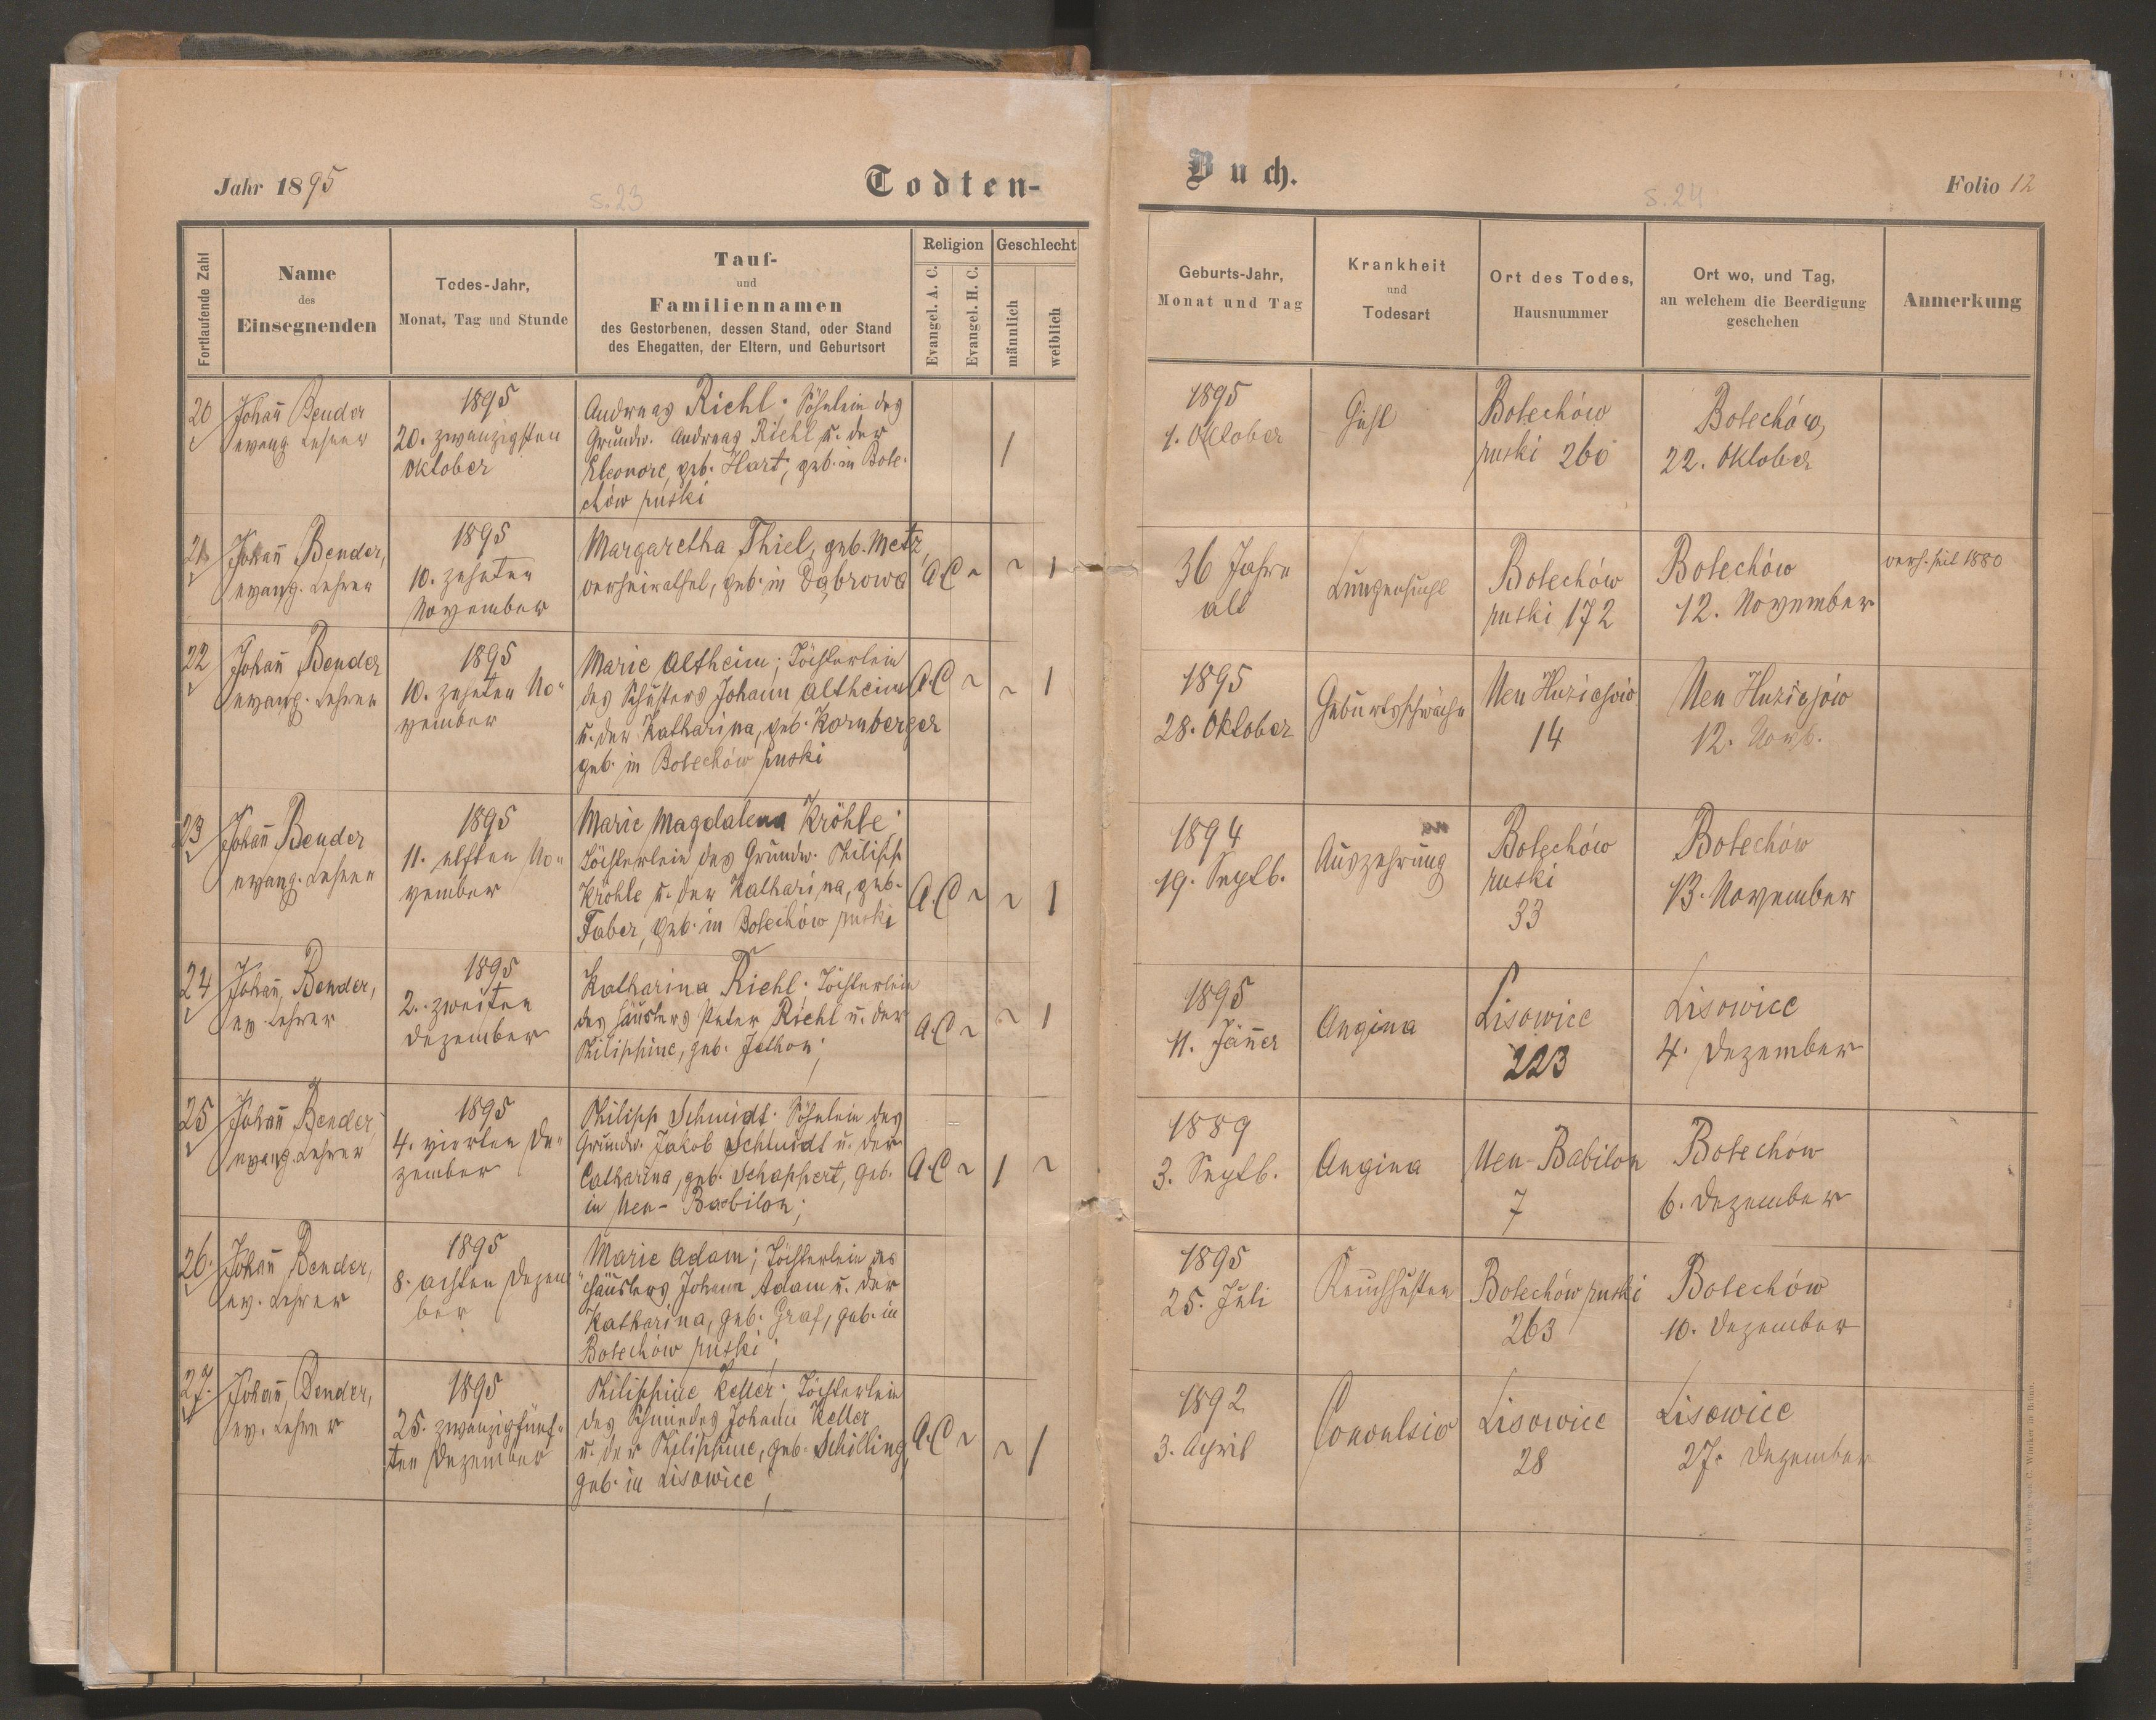 Jahr 1895
s. 23
Todten-
Fortlaufende Zahl
Name
des
Einsegnenden
Todes-Jahr,
Monat, Tag und Stunde
Tauf-
und
Familiennamen
des Gestorbenen, dessen Stand, oder Stand
des Ehegatten, der Eltern, und Geburtsort
Religion
Evangel. A. C.
Evangel. H. C.
Geschlecht
männlich
weiblich
20
Johañ Bender
evang. Lehrer
1895
20. zwanzigsten
Oktober
Andreas Riehl; Söhnlein des
Grundw. Andreas Riehl u. der
Eleonore, geb. Hart, geb. in Bole-
chów ruski
1
21
Johañ Bender,
evang. Lehrer
1895
10. zehnten
November
Margaretha Thiel, geb. Metz,
verheirathet, geb. in Dąbrowa
A.C ~ ~ 1
22
Johañ Bender
evang. Lehrer
1895
10. zehnten No-
vember
Marie Altheim; Töchterlein
des Schusters Johann Altheim
u. der Katharina, geb. Kornberger
geb. in Bolechów ruski
A.C ~ ~ 1
23
Johañ Bender
evang. Lehrer
1895
11. elften No-
vember
Marie Magdalena Kröhle;
Töchterlein des Grundw. Philipp
Kröhle u. der Katharina, geb.
Faber, geb. in Bolechów ruski
A.C ~ ~ 1
24
Johañ Bender,
ev. Lehrer
1895
2. zweiten
Dezember
Katharina Riehl; Töchterlein
des Häuslers Peter Riehl u. der
Philippine, geb. Jethon;
A.C ~ ~ 1
25
Johañ Bender,
evang. Lehrer
1895
4. vierten De-
zember
Philipp Schmidt; Söhnlein des
Grundw. Jakob Schmidt u. der
Catharina, geb. Schappert, geb.
in Neu-Babilon;
A.C ~ 1 ~
26.
Johañ Bender,
ev. Lehrer
1895
8. achten Dezem-
ber
Marie Adam; Töchterlein des
Häuslers Johann Adam u. der
Katharina, geb. Graf, geb. in
Bolechów ruski;
27.
Johañ Bender,
ev. Lehrer
1895
25. zwanzigfünf-
ten Dezember
Philippine Keller; Töchterlein
des Schmiedes Johann Keller
u. der Philippine, geb. Schilling,
geb. in Lisowice;
A.C ~ ~ 1
Buch.
s. 24
Folio 12
Geburts-Jahr,
Monat und Tag
Krankheit
und
Todesart
Ort des Todes,
Hausnummer
Ort wo, und Tag,
an welchem die Beerdigung
geschehen
Anmerkung
1895
1. Oktober
Bolechów
ruski 260
Bolechów
22. Oktober
36 Jahre
alt
Lungensucht
Bolechów
ruski 172
Bolechów
12. November
verh. seit 1880
1895
28. Oktober
Geburtsschwäche
Neu Huziejów
14
Neu Huziejów
12. Novb.
1894
19. Septb.
Auszehrung
Bolechów
ruski
33
Bolechów
13. November
1895
11. Jäñer
Angina
Lisowice
223
Lisowice
4. Dezember
1889
3. Septb.
Angina
Neu-Babilon
7
Bolechów
6. Dezember
1895
25. Juli
Keuchhusten
Bolechów ruski
263
Bolechów
10. Dezember
1892
3. April
Convulsio
Lisowice
28
Lisowice
27. Dezember